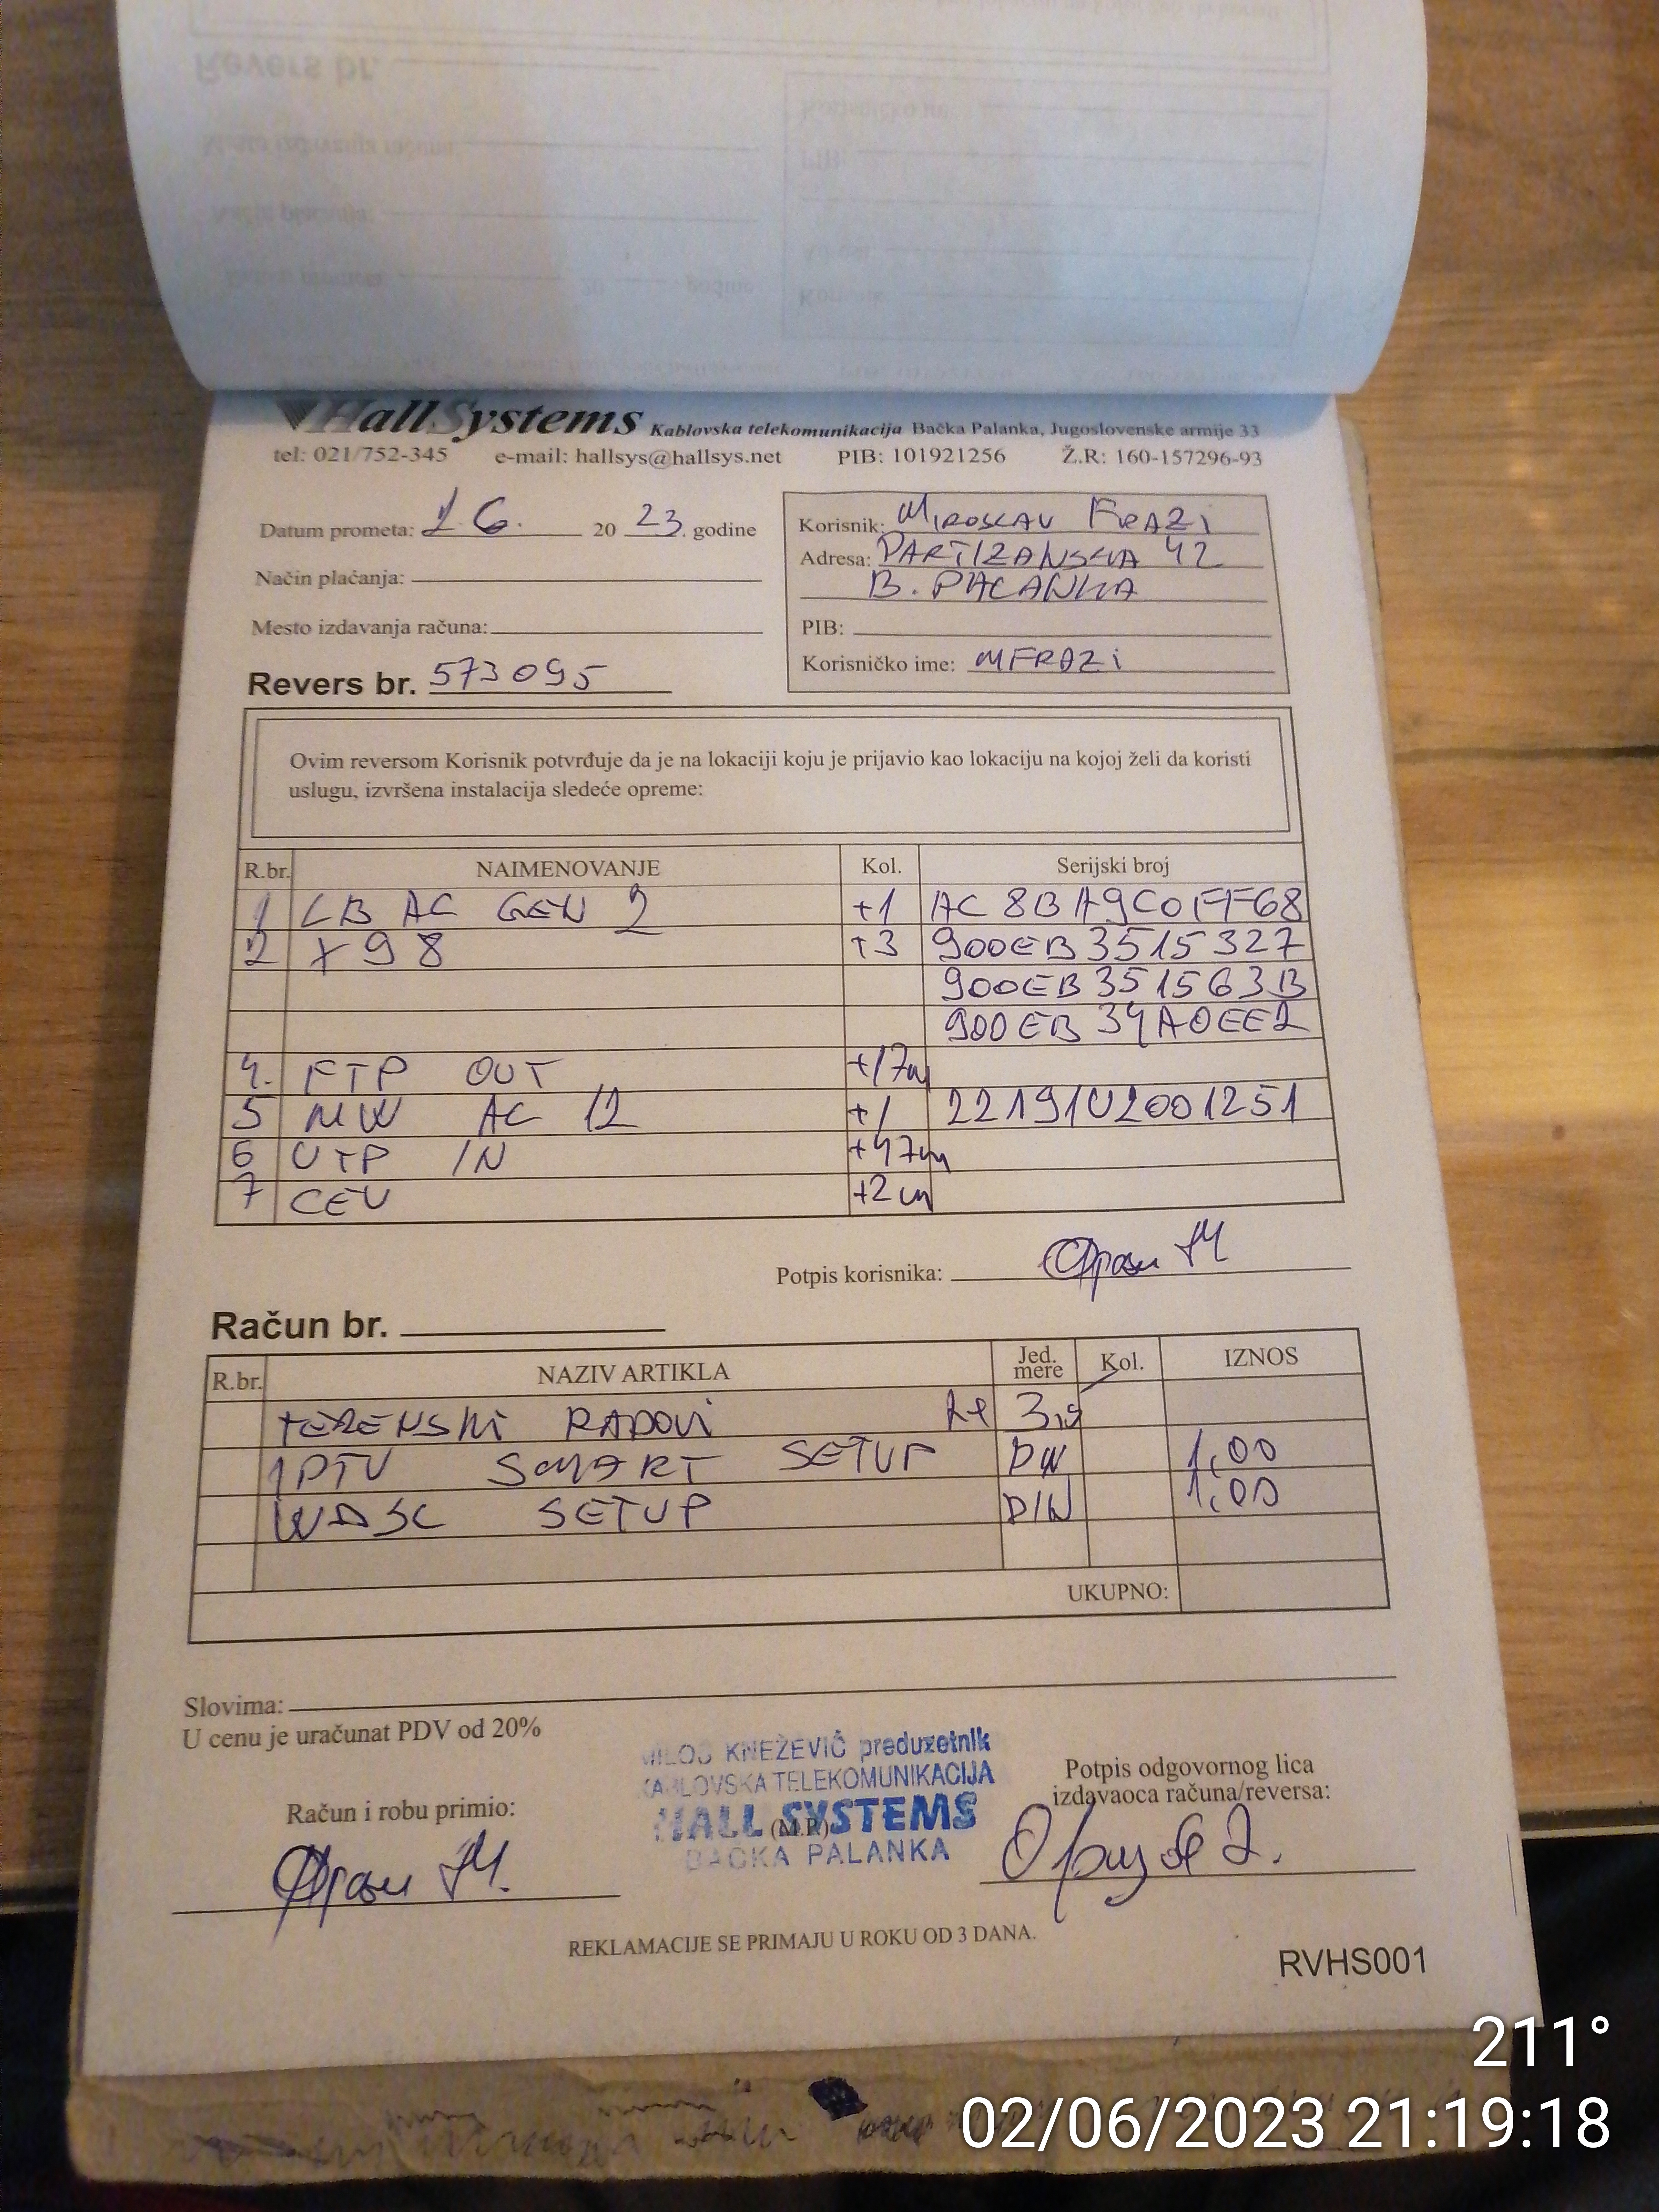 HallSystems Kablovska telekomunikacija Bačka Palanka, Jugoslovenske armije 33
tel: 021/752-345 e-mail: hallsys@hallsys.net PIB: 101921256 Ž.R: 160-157296-93
Datum prometa: 2 6. 20 23. godine
Način plaćanja:
Mesto izdavanja računa:
Revers br. 573095
Korisnik: MIROSLAV FRAZI
Adresa: PARTIZANSKA 42
B. PALANKA
PIB:
Korisničko ime: MFRAZI
Ovim reversom Korisnik potvrđuje da je na lokaciji koju je prijavio kao lokaciju na kojoj želi da koristi
uslugu, izvršena instalacija sledeće opreme:
R.br. NAIMENOVANJE Kol. Serijski broj
1 LB AC GEN 2 +1 AC8BA9C0FF68
2 X98 +3 900EB3515327
900EB351563B
900EB34A0EE2
4. FTP OUT +17m
5 MW AC 12 +1 22191U2001251
6 UTP IN +47m
7 CEV +2m
Potpis korisnika:
Račun br.
R.br. NAZIV ARTIKLA Jed. mere Kol. IZNOS
TERENSKI RADOVI
IPTV SMART SETUP DIN 1,00
WDSL SETUP DIN 1,00
UKUPNO:
Slovima:
U cenu je uračunat PDV od 20%
MILOŠ KNEŽEVIĆ preduzetnik
KABLOVSKA TELEKOMUNIKACIJA
HALL SYSTEMS
(M.P.)
BAČKA PALANKA
Potpis odgovornog lica
izdavaoca računa/reversa:
Račun i robu primio:
REKLAMACIJE SE PRIMAJU U ROKU OD 3 DANA.
RVHS001
211°
02/06/2023 21:19:18